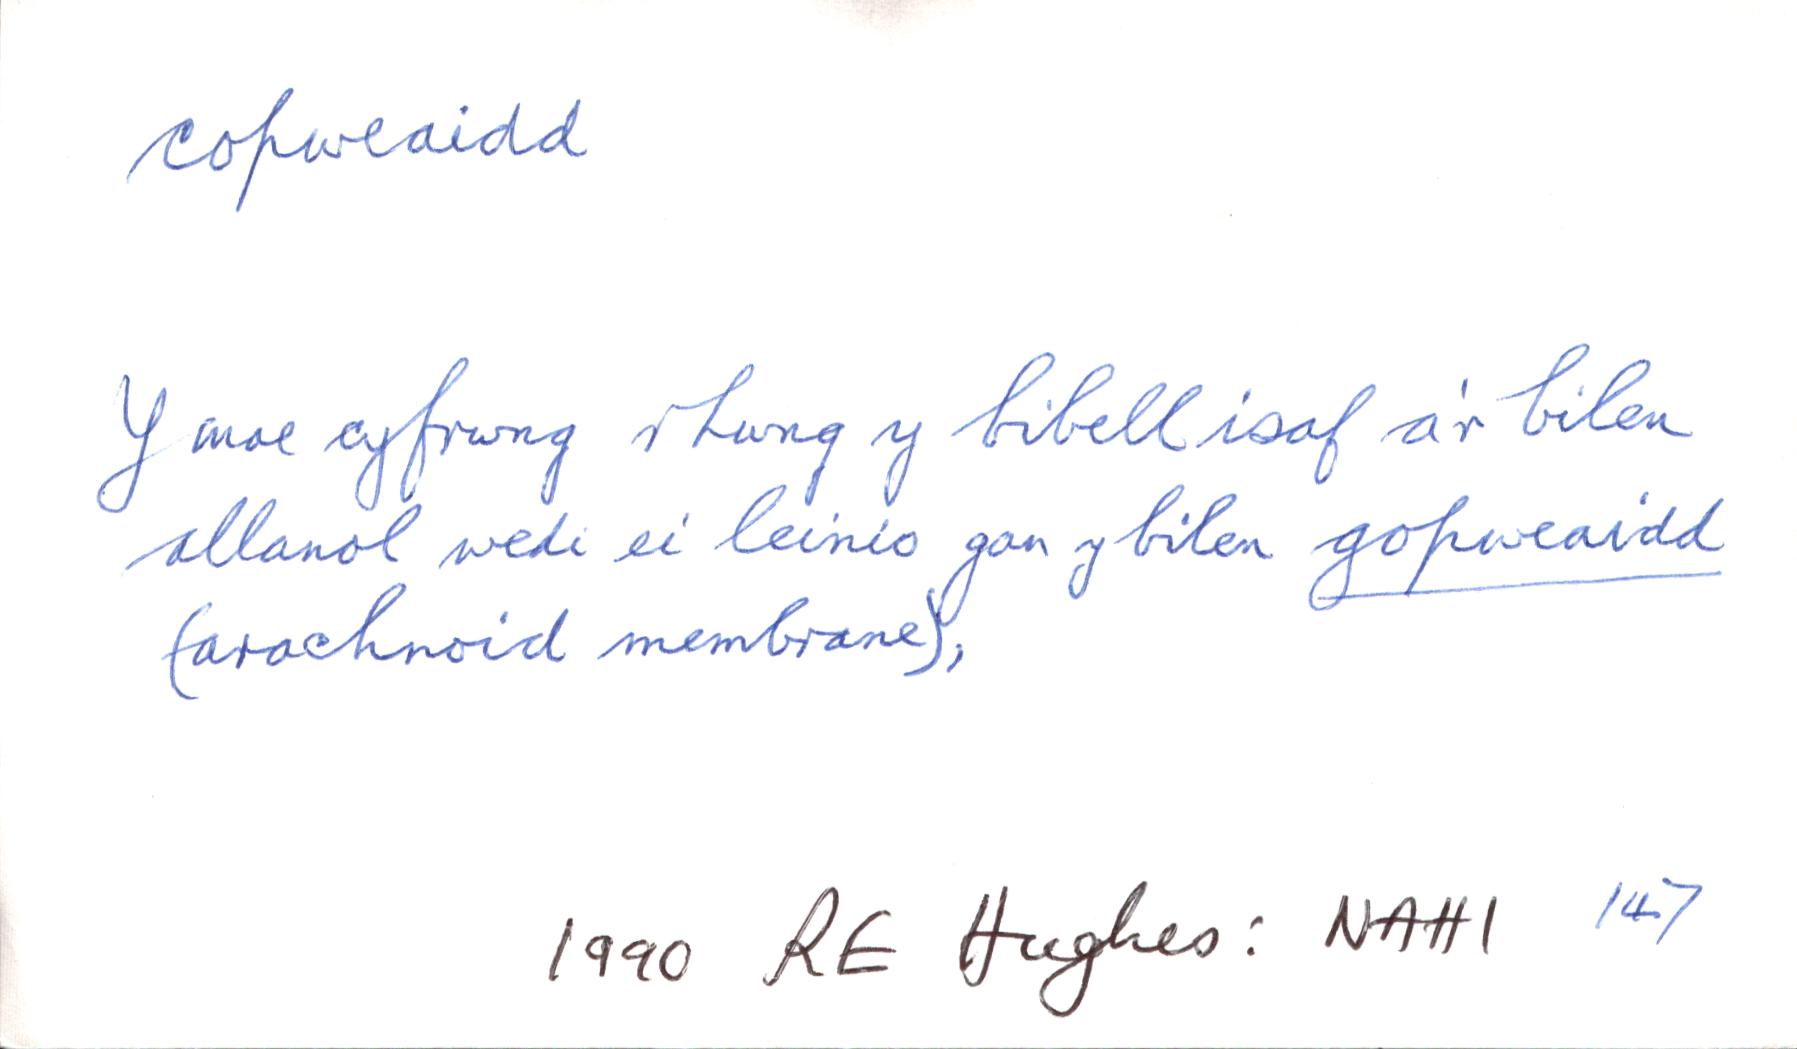 copweaidd
Y mae cyfrwng rhwng y bibell isaf a'r bilen
allanol wedi ei leinio gan y bilen gopweaidd
(arachnoid membrane),
1990 RE Hughes: NAHI 147